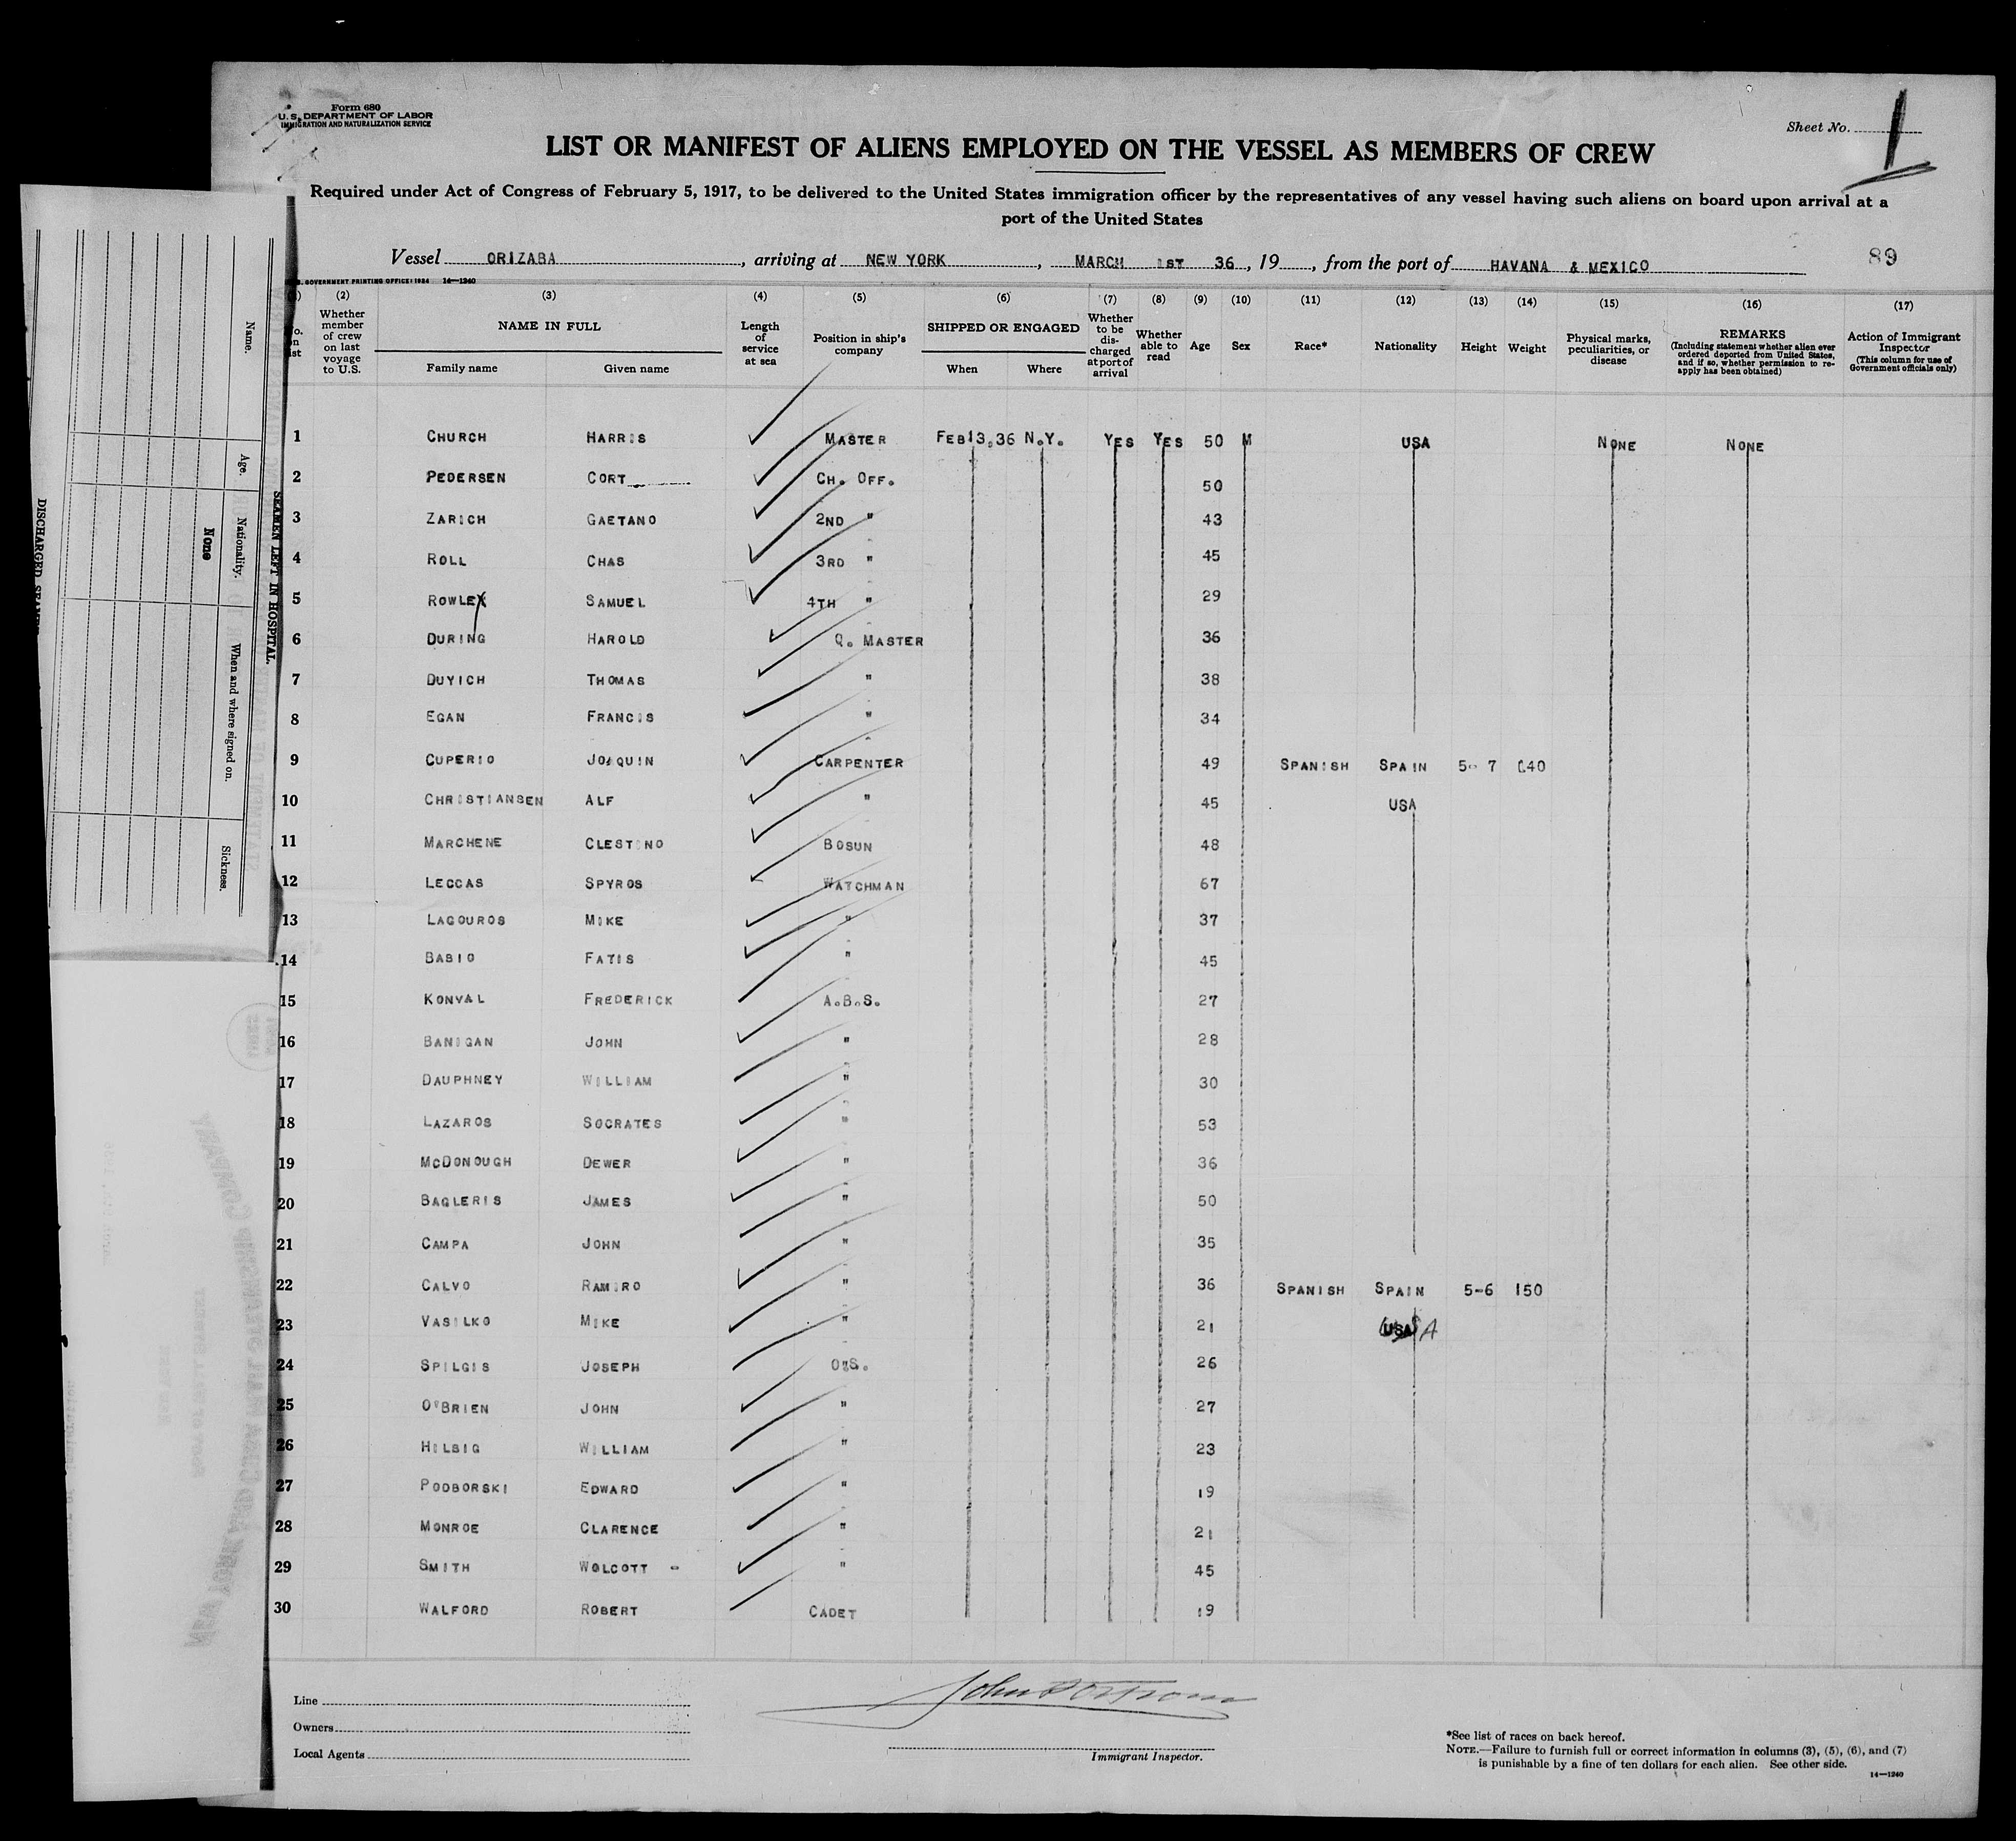 Form 680
U.S. DEPARTMENT OF LABOR
IMMIGRATION AND NATURALIZATION SERVICE
Sheet No. 1
LIST OR MANIFEST OF ALIENS EMPLOYED ON THE VESSEL AS MEMBERS OF CREW
Required under Act of Congress of February 5, 1917, to be delivered to the United States immigration officer by the representatives of any vessel having such aliens on board upon arrival at a
port of the United States
Vessel ORIZABA, arriving at NEW YORK, MARCH 1ST 36, 19, from the port of HAVANA & MEXICO 89
GOVERNMENT PRINTING OFFICE: 1934 14—1240
(2) (3) (4) (5) (6) (7) (8) (9) (10) (11) (12) (13) (14) (15) (16) (17)
Whether member of crew on last voyage to U.S.
NAME IN FULL
Family name Given name
Length of service at sea
Position in ship's company
SHIPPED OR ENGAGED
When Where
Whether to be discharged at port of arrival
Whether able to read
Age Sex Race* Nationality Height Weight
Physical marks, peculiarities, or disease
REMARKS
(Including statement whether alien ever ordered deported from United States, and if so, whether permission to re-apply has been obtained)
Action of Immigrant Inspector
(This column for use of Government officials only)
1 CHURCH HARRIS MASTER FEB 13,36 N.Y. YES YES 50 M USA NONE NONE
2 PEDERSEN CORT CH. OFF. 50
3 ZARICH GAETANO 2ND " 43
4 ROLL CHAS 3RD " 45
5 ROWLEY SAMUEL 4TH " 29
6 DURING HAROLD Q. MASTER 36
7 DUYICH THOMAS " 38
8 EGAN FRANCIS " 34
9 CUPERIO JOAQUIN CARPENTER 49 SPANISH SPAIN 5- 7 140
10 CHRISTIANSEN ALF " 45 USA
11 MARCHENE CLESTINO BOSUN 48
12 LECCAS SPYROS WATCHMAN 67
13 LAGOUROS MIKE " 37
14 BASIO FATIS " 45
15 KONVAL FREDERICK A.B.S. 27
16 BANIGAN JOHN " 28
17 DAUPHNEY WILLIAM " 30
18 LAZAROS SOCRATES " 53
19 MCDONOUGH DEWER " 36
20 BAGLERIS JAMES " 50
21 CAMPA JOHN " 35
22 CALVO RAMIRO " 36 SPANISH SPAIN 5-6 150
23 VASILKO MIKE " 21 USA
24 SPILGIS JOSEPH O.S. 26
25 O'BRIEN JOHN " 27
26 HILBIG WILLIAM " 23
27 PODBORSKI EDWARD " 19
28 MONROE CLARENCE " 21
29 SMITH WOLCOTT - " 45
30 WALFORD ROBERT CADET 19
Line
Owners
Local Agents
Immigrant Inspector.
*See list of races on back hereof.
NOTE.—Failure to furnish full or correct information in columns (3), (5), (6), and (7)
is punishable by a fine of ten dollars for each alien. See other side.
14—1240
SEAMEN LEFT IN HOSPITAL.
Name. Age. Nationality. When and where signed on. Sickness.
None
DISCHARGED